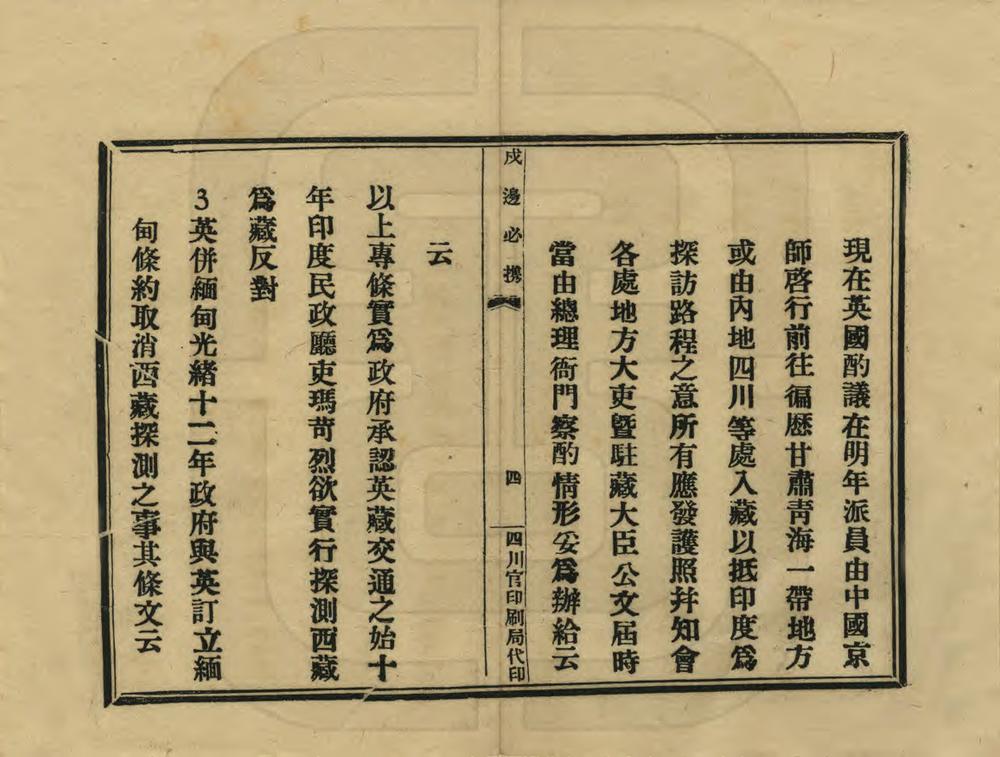 現在英國酌議在明年派員由中國京
師啓行前往徧歷甘肅靑海一帶地方
或由內地四川等處入藏以抵印度爲
探訪路程之意所有應發護照幷知會
各處地方大吏曁駐藏大臣公文屆時
當由總理衙門察酌情形妥爲辦給云
戍邊必携
四
四川官印刷局代印
云
以上專條實爲政府承認英藏交通之始十
年印度民政廳吏瑪苛烈欲實行探測西藏
爲藏反對
3英併緬甸光緖十二年政府與英訂立緬
甸條約取消西藏探測之事其條文云